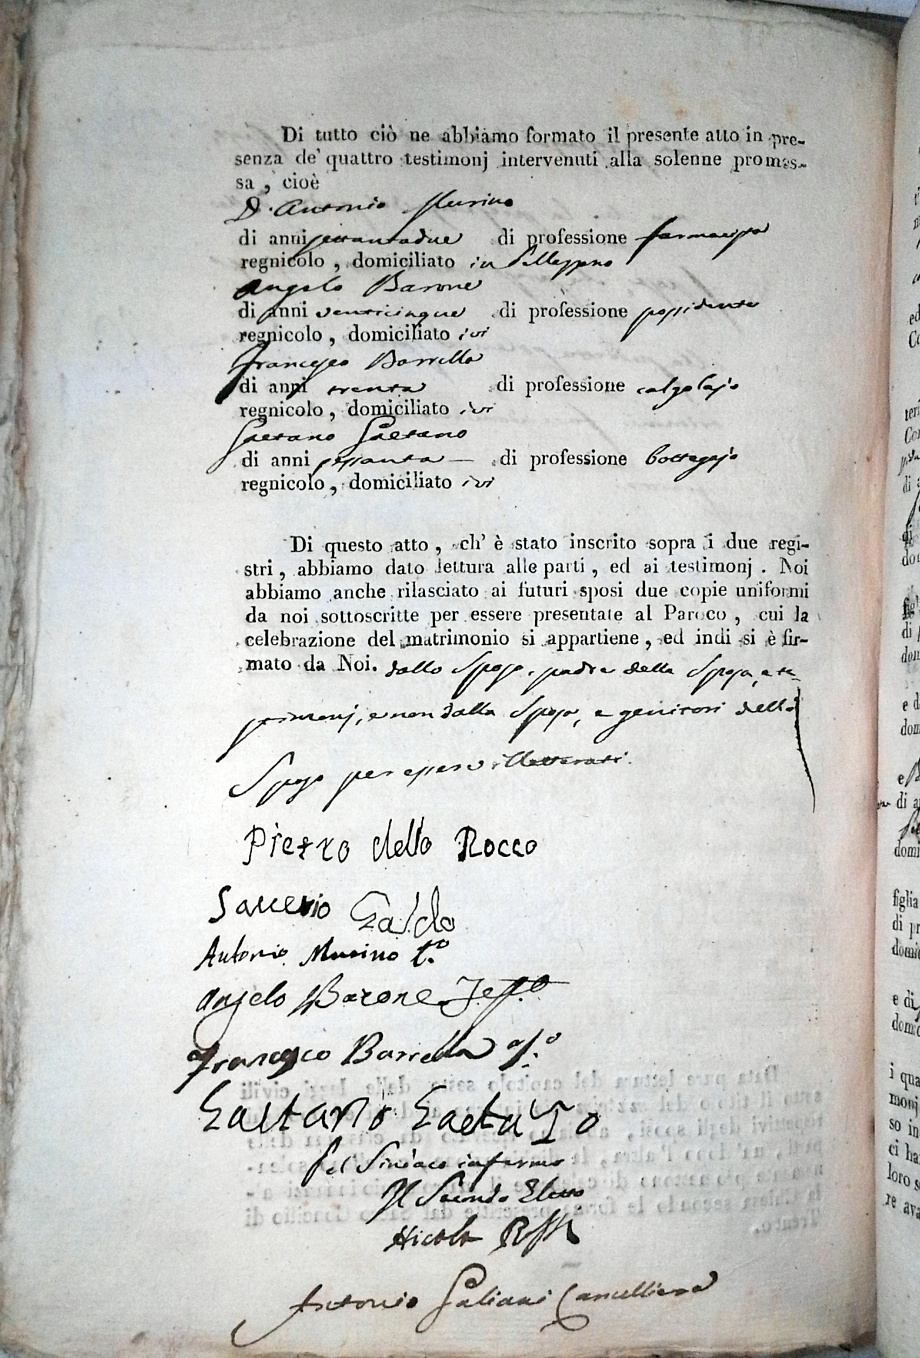 Di tutto ciò ne abbiamo formato il presente atto in pre-
senza de' quattro testimonj intervenuti alla solenne promes-
sa, cioè
D. Antonio Murino
di anni settantadue di professione farmacista
regnicolo, domiciliato in
Angelo Barone
di anni venticinque di professione possidente
regnicolo, domiciliato ivi
Francesco Barrella
di anni trenta di professione calzolajo
regnicolo, domiciliato ivi
Gaetano Gaetano
di anni sessanta — di professione bottegajo
regnicolo, domiciliato ivi
Di questo atto, ch' è stato inscrito sopra i due regi-
stri, abbiamo dato lettura alle parti, ed ai testimonj. Noi
abbiamo anche rilasciato ai futuri sposi due copie uniformi
da noi sottoscritte per essere presentate al Paroco, cui la
celebrazione del matrimonio si appartiene, ed indi si è fir-
mato da Noi. dallo Sposo, padre della Sposa, e te-
stimonj, e non dalla Sposa, e genitori dello
Sposo per essere illetterati.
Pietro della Rocco
Saverio Galdo
Antonio Murino t.o
Angelo Barone Testo
Francesco Barrella
Gaetano Gaetano
Pel Sindaco infermo
Il Secondo Eletto
Nicola Rossi
Antonio Galiani Cancelliere